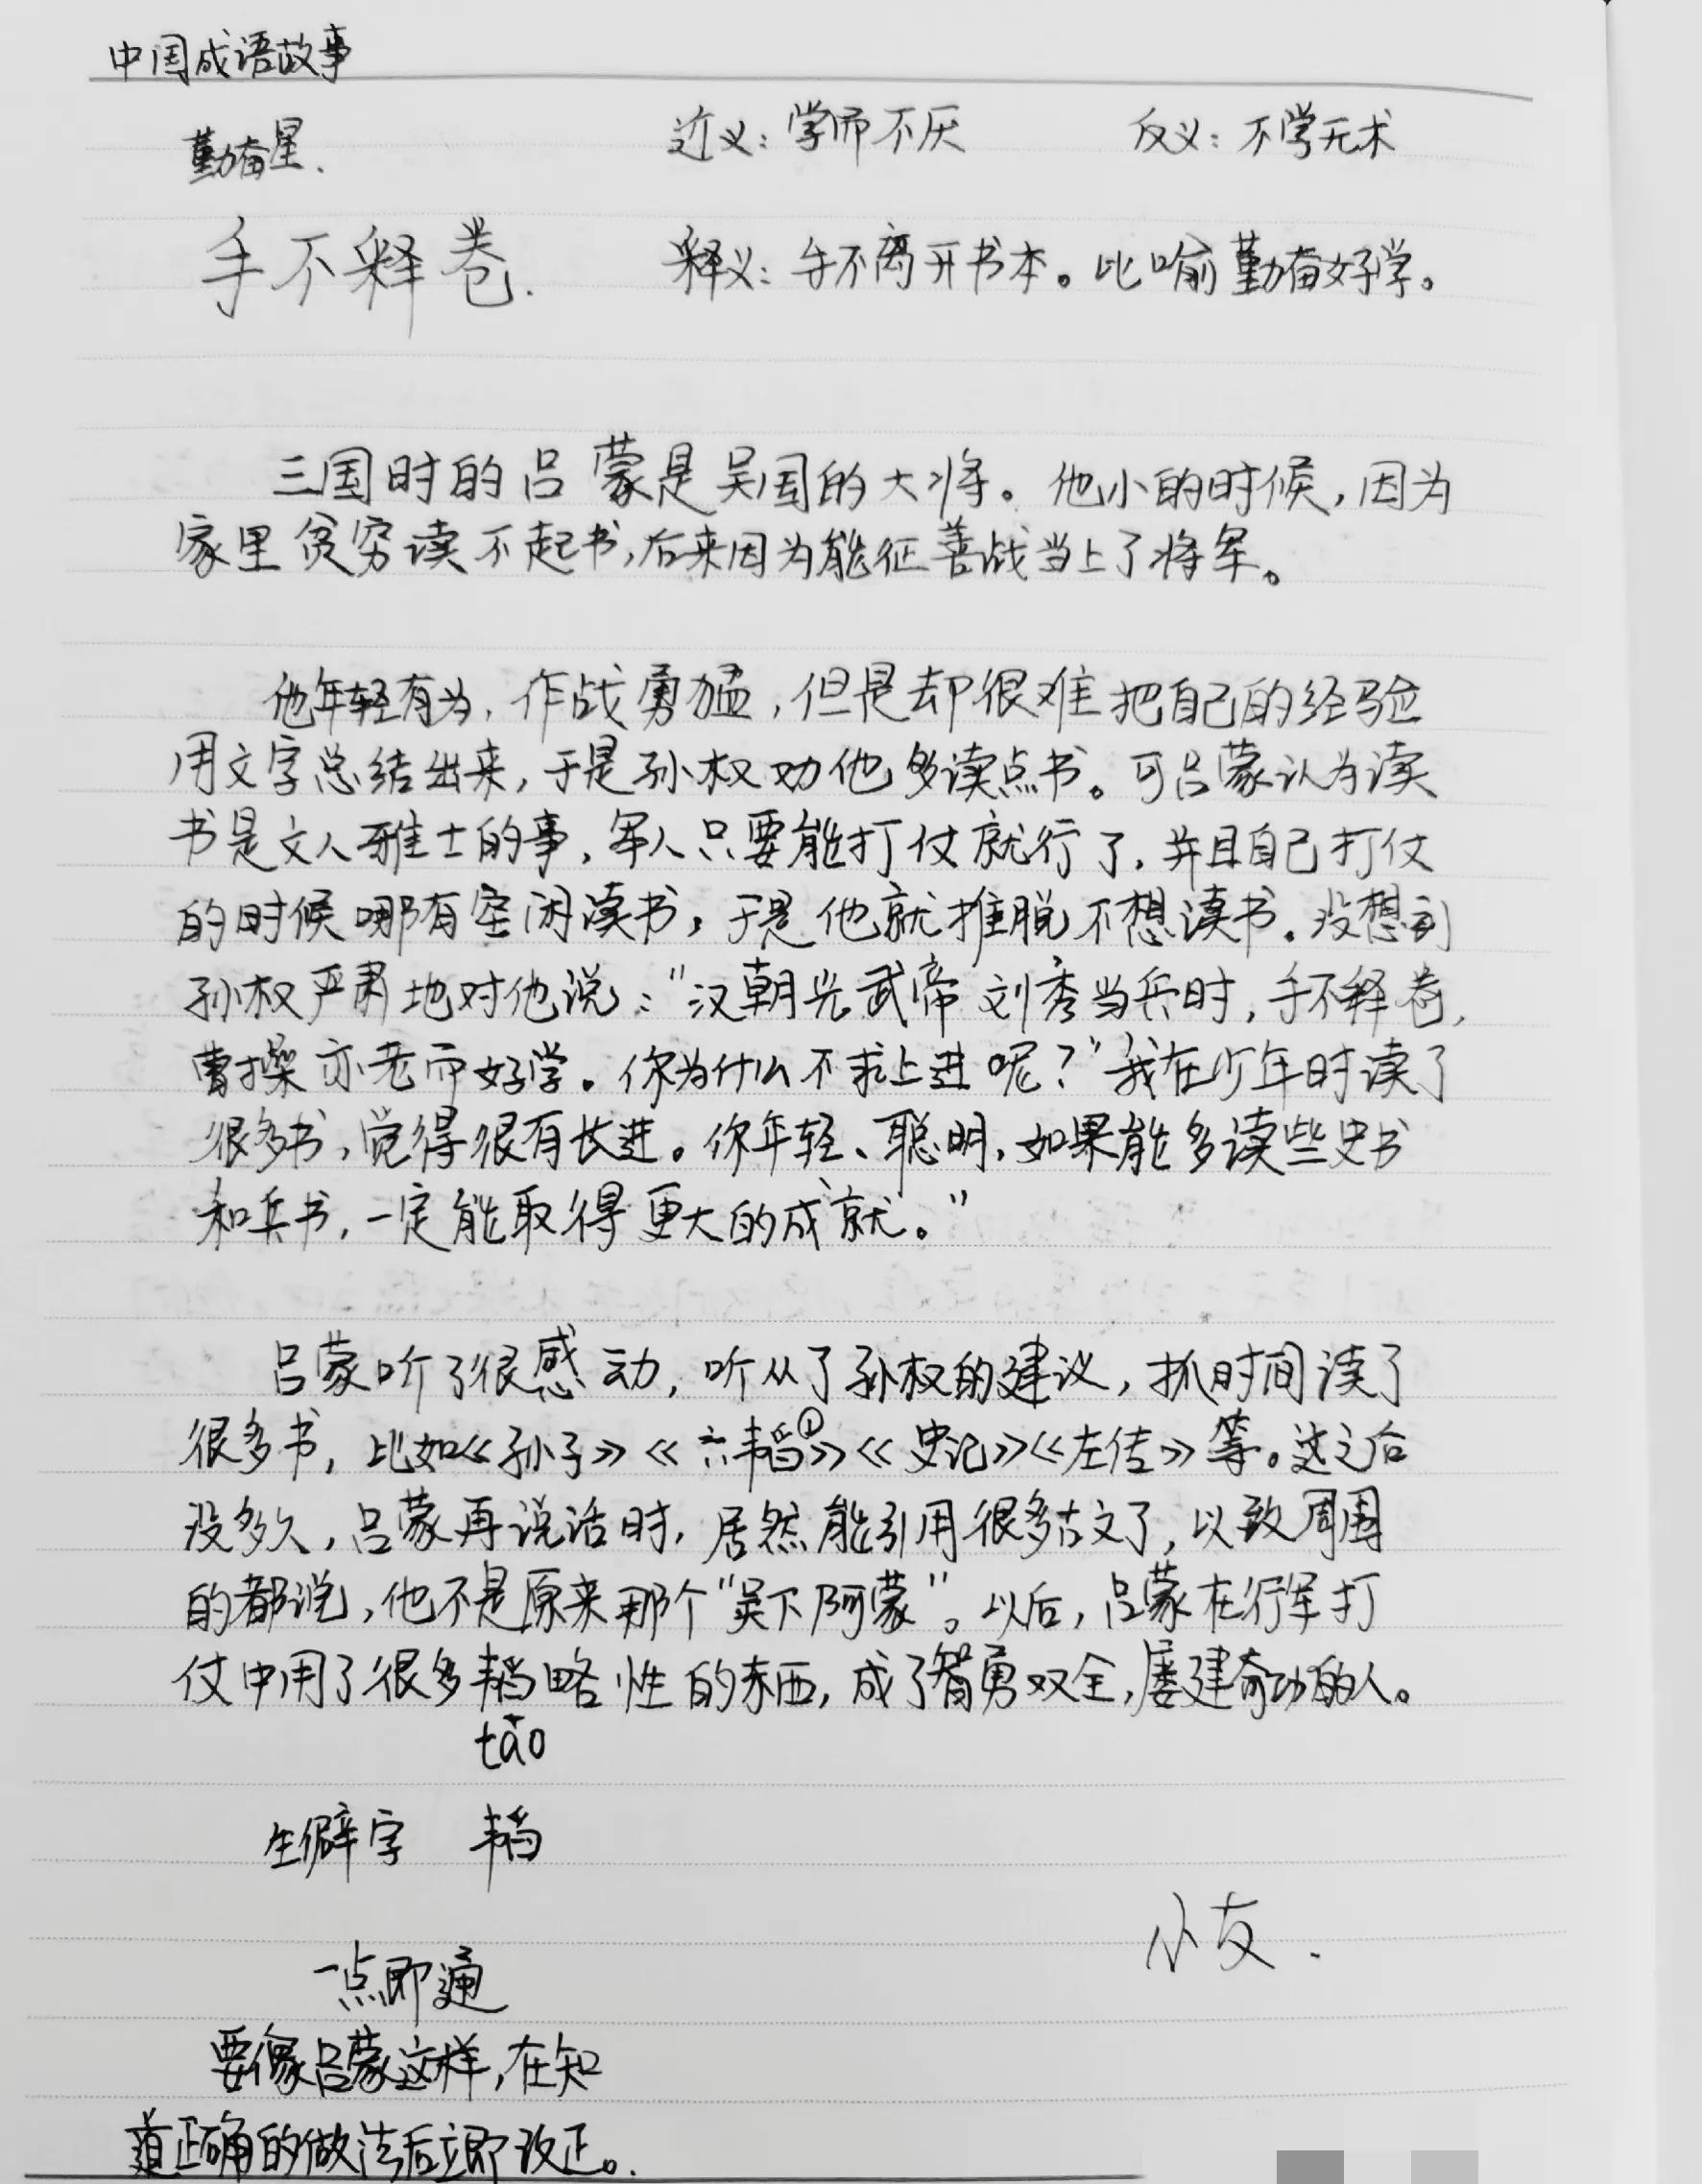 中国成语故事
勤奋星. 近义：学而不厌 反义：不学无术
手不释卷. 释义：手不离开书本。比喻勤奋好学。
三国时的吕蒙是吴国的大将。他小的时候，因为
家里贫穷读不起书，后来因为能征善战当上了将军。
他年轻有为，作战勇猛，但是却很难把自己的经验
用文字总结出来，于是孙权劝他多读点书。可吕蒙认为读
书是文人雅士的事，军人只要能打仗就行了，并且自己打仗
的时候哪有空闲读书，于是他就推脱不想读书。没想到
孙权严肃地对他说：“汉朝光武帝刘秀当兵时，手不释卷，
曹操亦老而好学。你为什么不求上进呢？”我在少年时读了
很多书，觉得很有长进。你年轻、聪明，如果能多读些史书
和兵书，一定能取得更大的成就。”
吕蒙听了很感动，听从了孙权的建议，抓时间读了
很多书，比如《孙子》《六韬①》《史记》《左传》等。这之后
没多久，吕蒙再说话时，居然能引用很多古文了，以致周围
的都说，他不是原来那个“吴下阿蒙”。以后，吕蒙在行军打
仗中用了很多韬略性的东西，成了智勇双全，屡建奇功的人。
tāo
生僻字 韬
小友.
一点即通
要像吕蒙这样，在知
道正确的做法后立即改正。